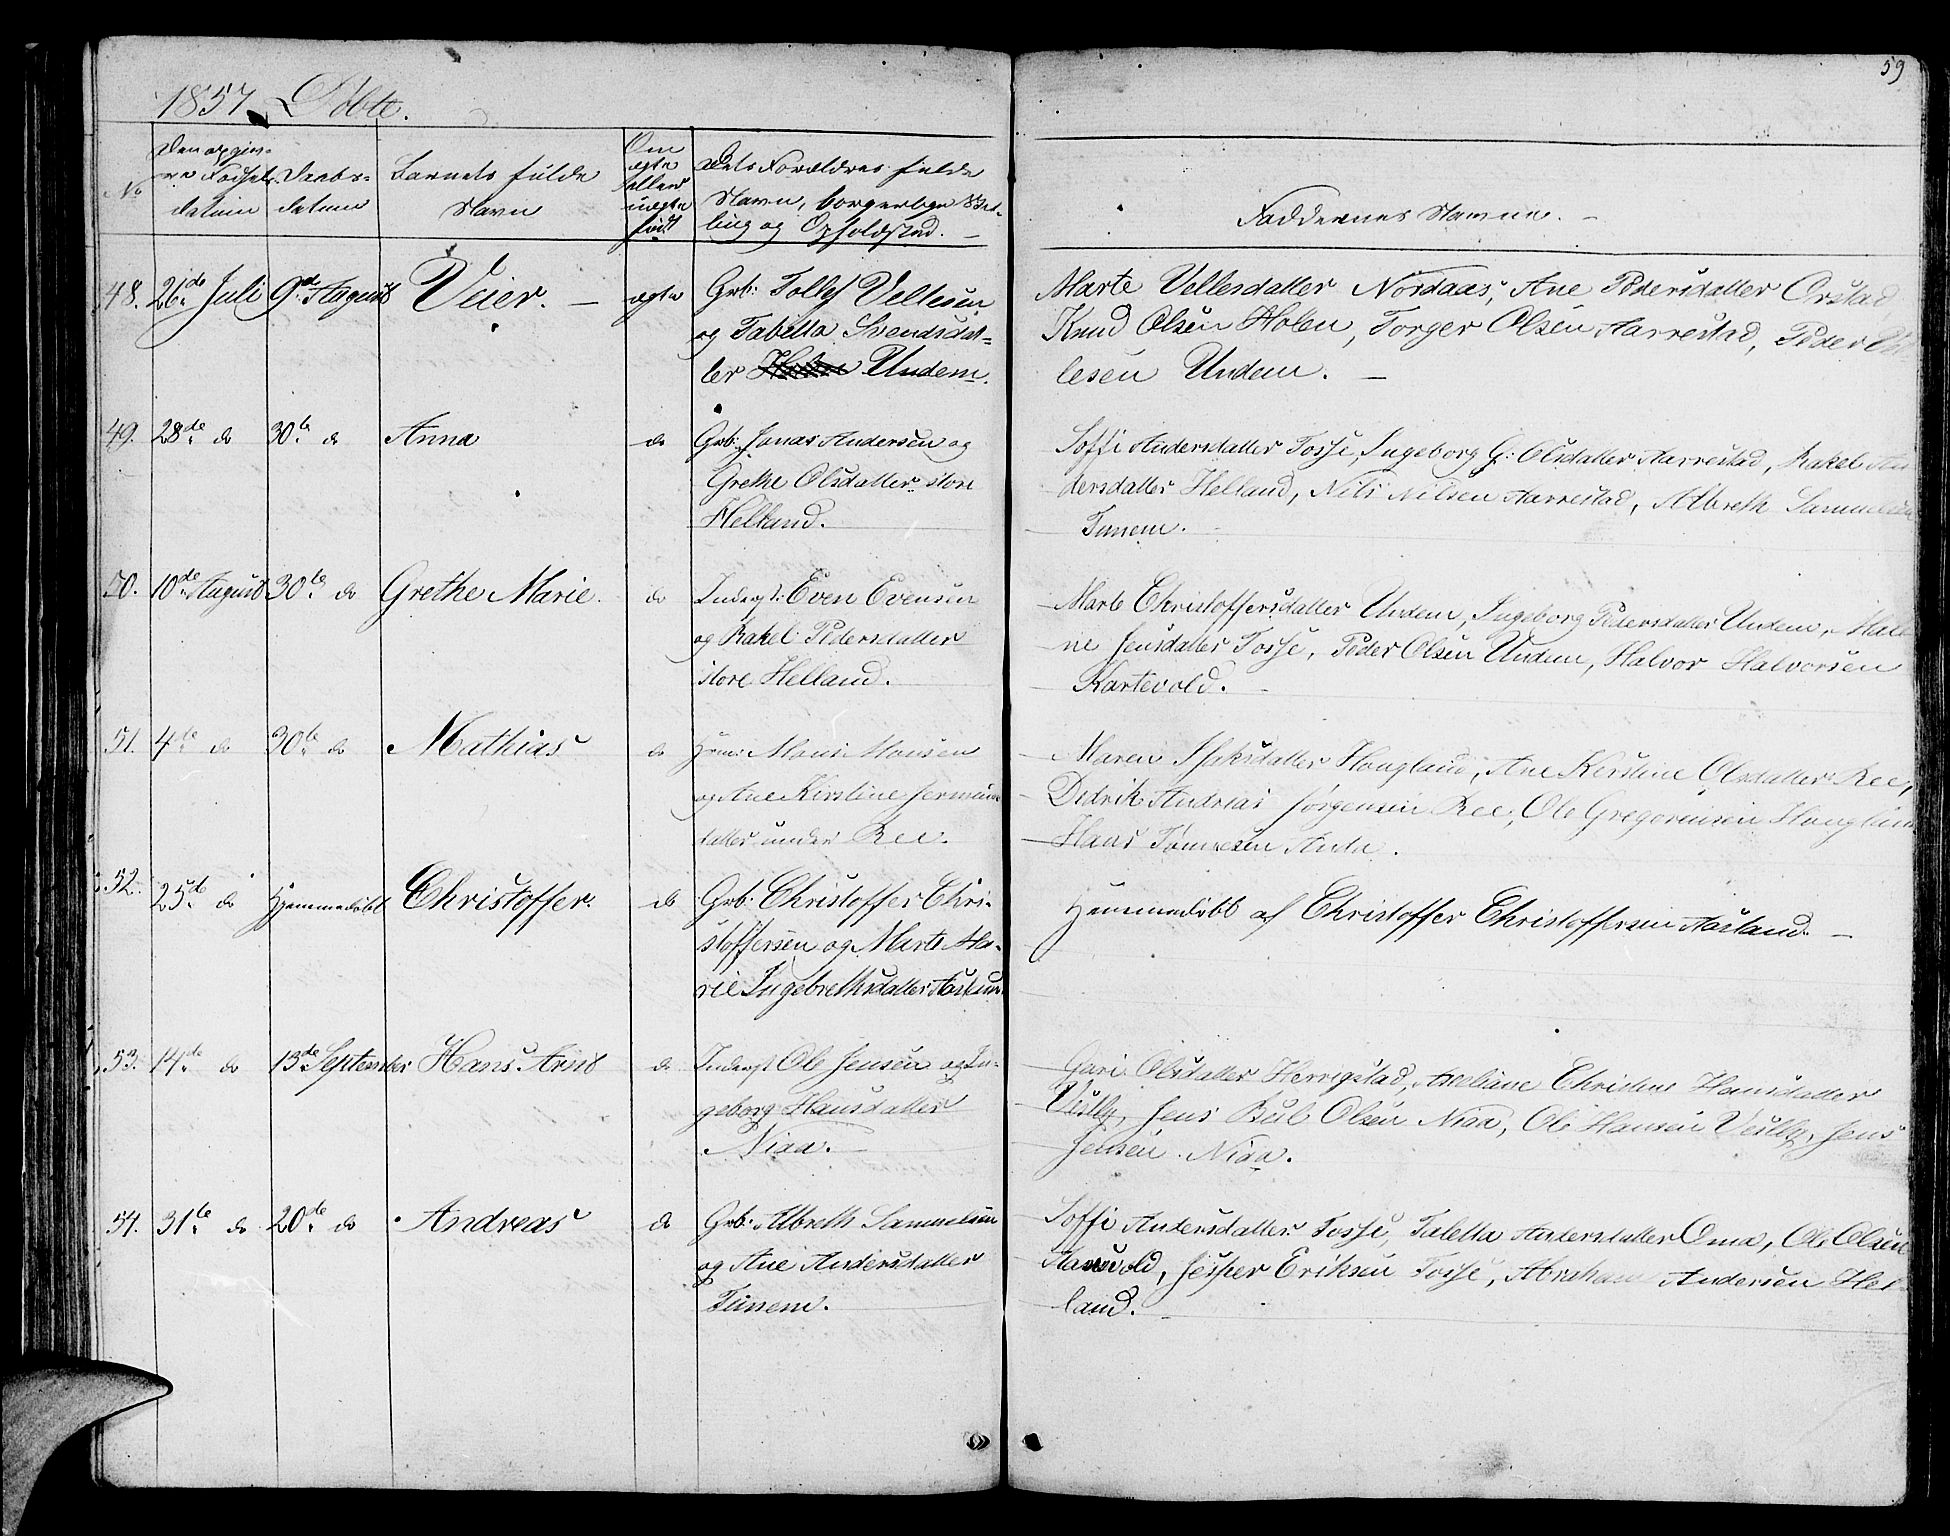 59
1857 Döbte.
No
Den opgiv-
ne Fødsels-
datum
Daabs-
datum
Barnets fulde
Navn
Om
ægte
eller
uægte
født
Dets Forældres fulde
Navn, borgerlige Stil-
ling og Opholdsted. —
Faddernes Navne. —
48. 26de Juli 9de August Veier. — ægte
Grb: Tollef Vellesen
og Tabitta Svendsdat-
ler Undem.
Marte Vellesdatter Nordaas, Ane Pedersdatter Orstad
Knud Olsen Holen, Torger Olsen Aarrestad, Peder
lesen Undem. —
49. 28de do 30te do Anna do
Grb: Jonas Andersen og
Grethe Olsdatter store
Helland.
Soffi Andersdatter Tosse, Ingeborg G: Olsdatter Aarrestad, Rakel An
dersdatter Helland, Nils Nilsen Aarrestad, Albreth Samuelsen
Tunem. —
50. 10de August 30te do Grethe Marie. do
Inderst: Even Evensen
og Rakel Pedersdatter
store Helland.
Marte Christoffersdatter Undem, Ingeborg Pedersdatter Undem, Male
ne Jensdatter Tosse, Peder Olsen Undem, Halvor Halvorsen
Kartevold. —
51. 4de do 30te do Mathias do
Huusm: Mons Monsen
og Ane Kirstine Jermuns
datter under Ree.
Maren Isaksdatter Haugland, Ane Kirstine Olsdatter Ree,
Didrik Andreas Jørgensen Ree, Ole Gregoriusen Hauglan
Hans Tønnesen Anda.
52. 25de do Hjemmedöbt Christoffer. do
Grb: Christoffer Chri-
stoffersen og Marte Ma-
rie Ingebrethsdatter Aasland
Hjemmedöbt af Christoffer Christoffersen Aasland. —
53. 14de do 13de September Hans Arnt do
Inderst Ole Jensen og In-
geborg Hansdatter
Niaa. —
Gari Olsdatter Herrigstad, Christine Hansdatter
Vestly, Jens Bul Olsen Niaa, Ole Hansen Vestly, Jens
Jensen Niaa.
54. 31te do 20de do Andreas do
Grb: Albreth Samuelsen
og Ane Andersdatter
Tunem.
Soffi Andersdatter Tosse, Taletta Andersdatter Oma, Ole Olsen
Jesper Eriksen Tosse, Abraham Andersen Hel-
land. —